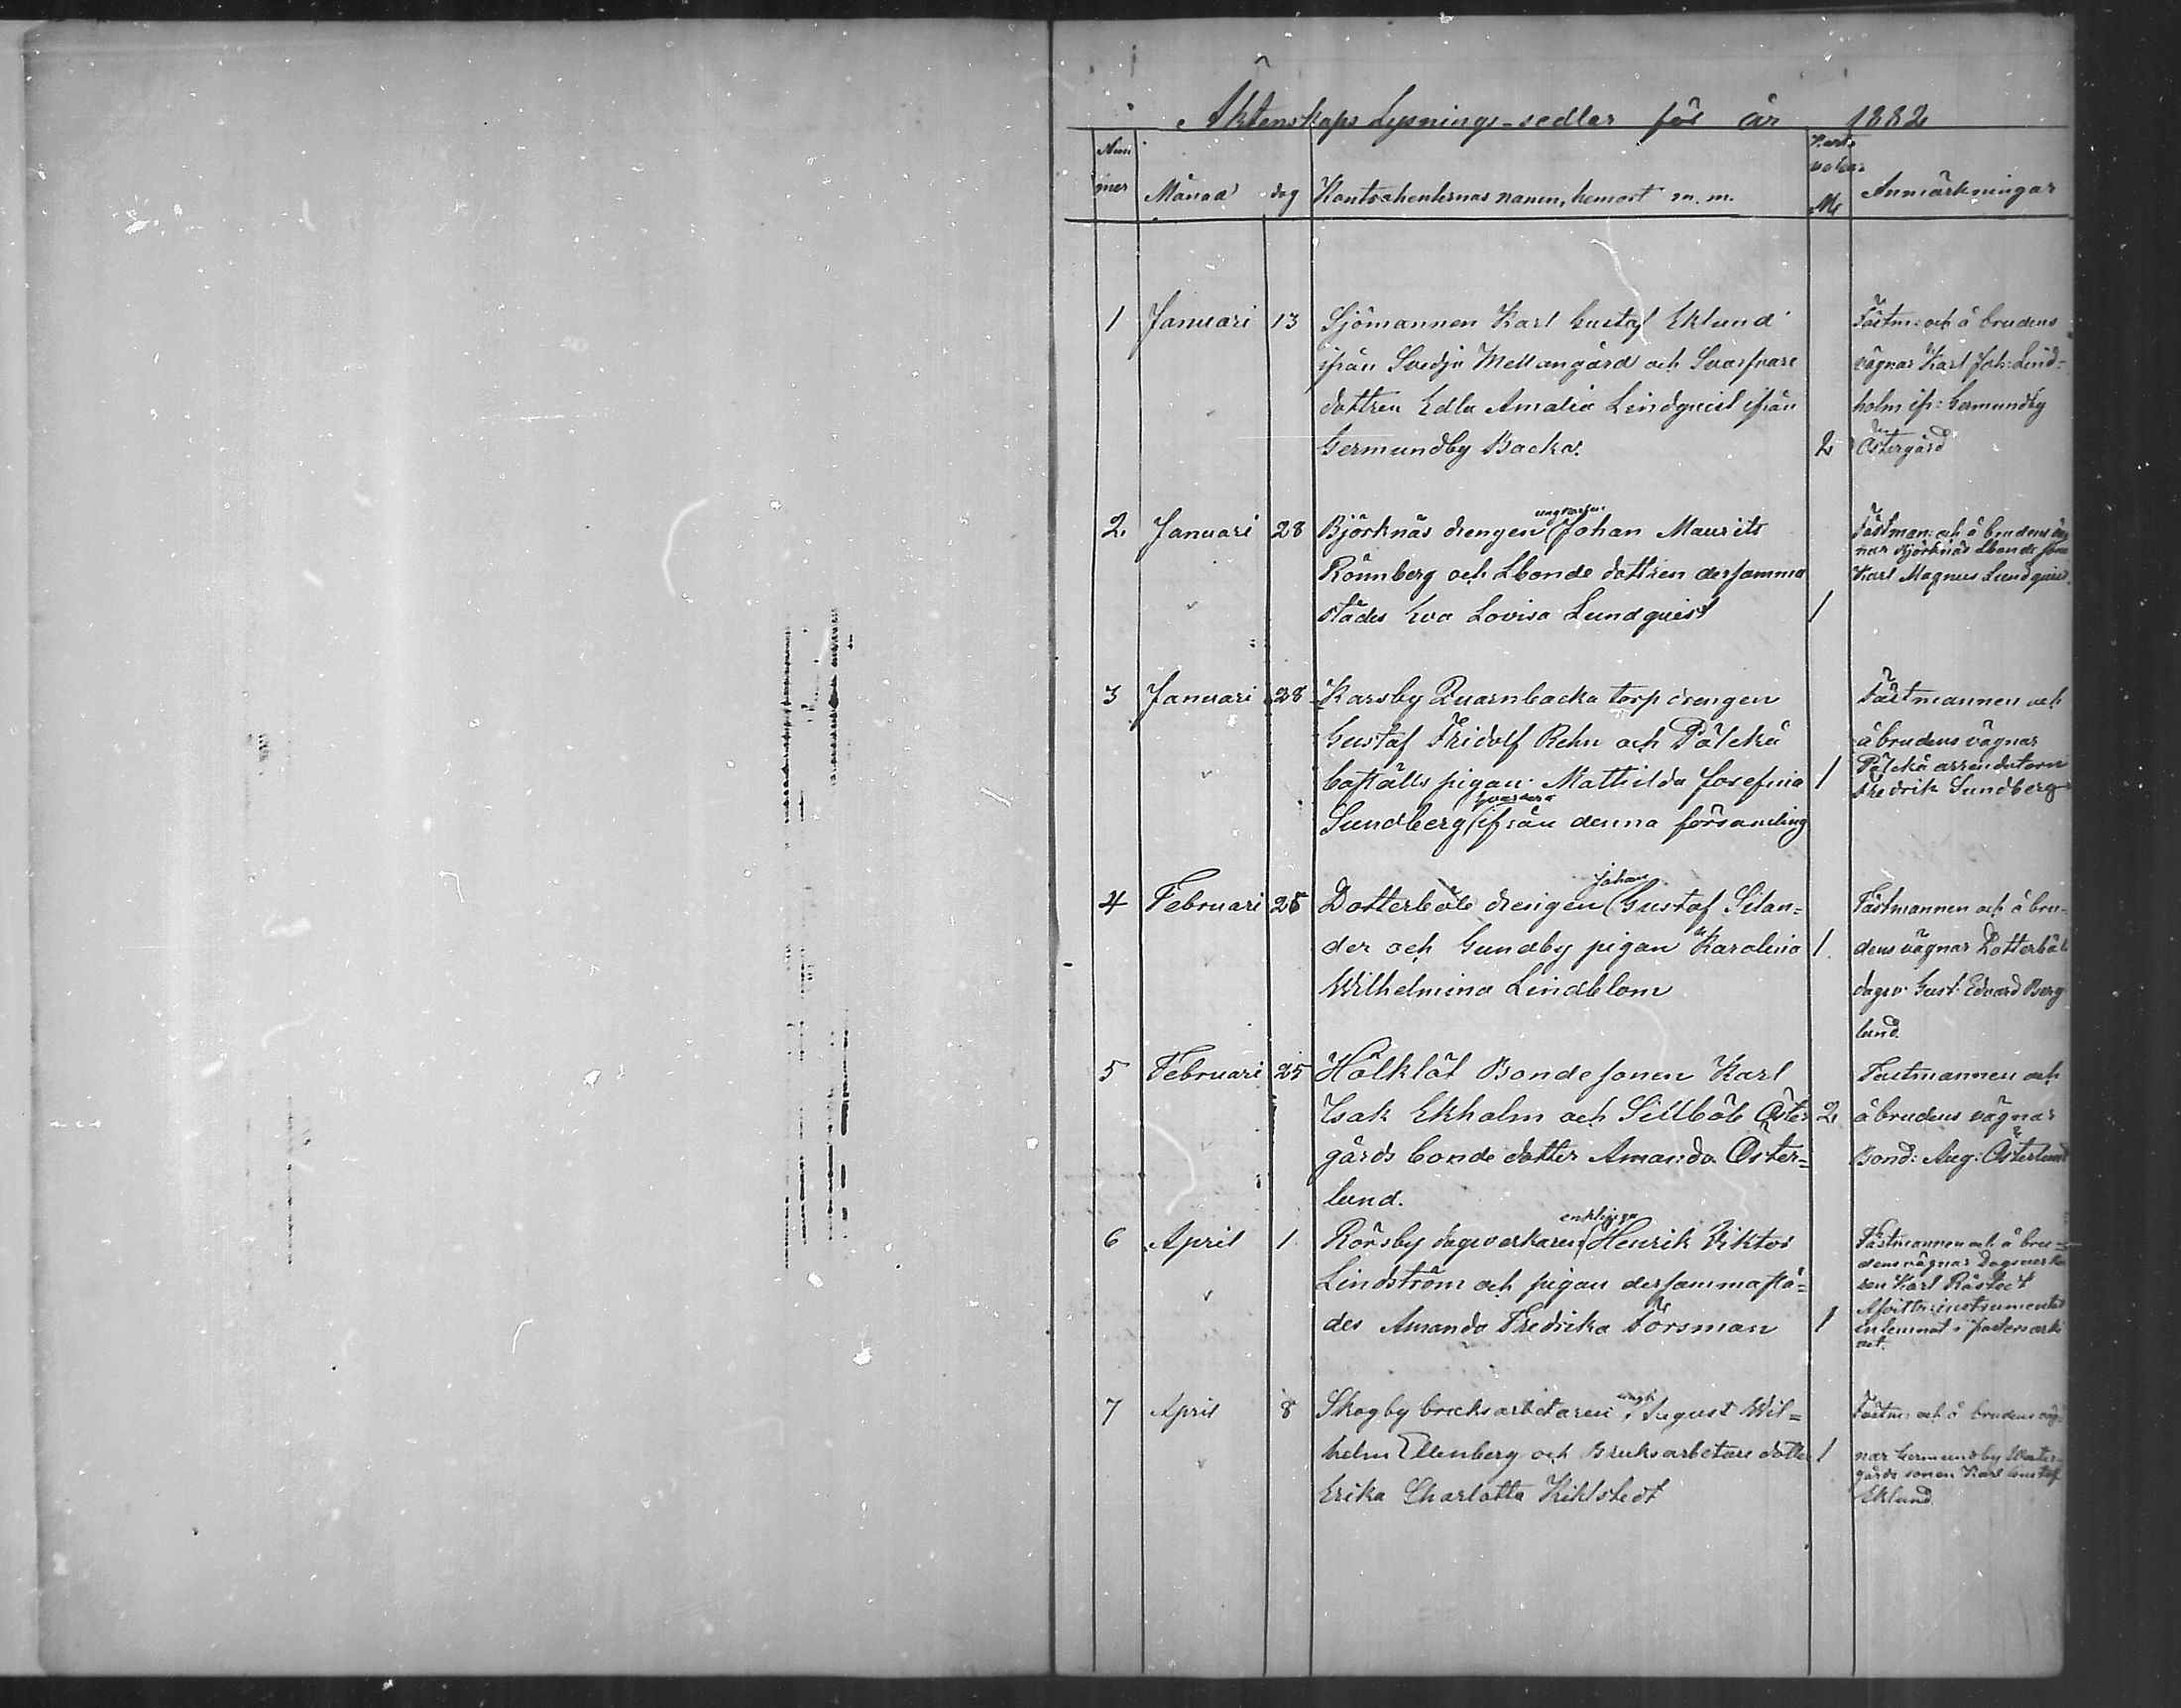 Äktenskaps Lysnings-sedlar för år 1882
Num
mer
Månad dag Kontrahenternas namn, hemort m. m. Anmärkningar
1 Januari 13 Sjömannen Karl Gustaf Eklund
ifrån Svedja Mellangård och Svarfvare
dottren Edla Amalia Lindqvist ifrån
Germundby Backa. 2
Fästm: och å brudens
vägnar Karl Joh: Lind=
holm ifr: Germundby
Östergård
2. Januari 28 Björknäs drengen ungkarlen Johan Maurits
Rönnberg och Lbonde dottren dersamma
städes Eva Lovisa Lundquist 1
Fästman: och å brudens väg
nar Björknäs Lbonde sone
Karl Magnus Lundquist.
3 Januari 28 Karsby Quarnbacka torp drengen
Gustaf Fridolf Rehn och Pålckå
boställs pigan Mathilda Josefina 1
Sundberg ifrån denna församling
Fästmannen och
å brudens vägnar
Pålckå arrendatorn
Fredrik Sundberg
4 Februari 25 Dotterböle drengen Johan Gustaf Silan=
der och Gundby pigan Karolina 1.
Wilhelmina Lindblom
Fästmannen och å bru-
dens vägnar Dotterböle
dagsv: Gust: Edvard Berg
lund.
5 Februari 25 Hölklöt Bondesonen Karl
Isak Ekholm och Sillböle Öster 2
gårds bonde dotter Amanda Öster=
lund.
Fästmannen och
å brudens vägnar
Bond: Aug: Österlund
6 April 1 Rörsby dagsverkaren enklingen Henrik Viktor
Lindström och pigan dersammastä=
des Amanda Fredrika Forsman 1
Fästmannen och å bru=
dens vägnar Dagsverka
ren Karl Råstedt
Afvittr:instrumentet
inlemnat i pastorsarki
vet.
7 April 8 Skogby bruksarbetaren ungk August Wil=
helm Ellenberg och Bruksarbetare dotter 1
Erika Charlotta Kihlstedt
Fästm: och å brudens väg
nar Germundby Wester-
gårds sonen Karl Gustaf
Eklund.